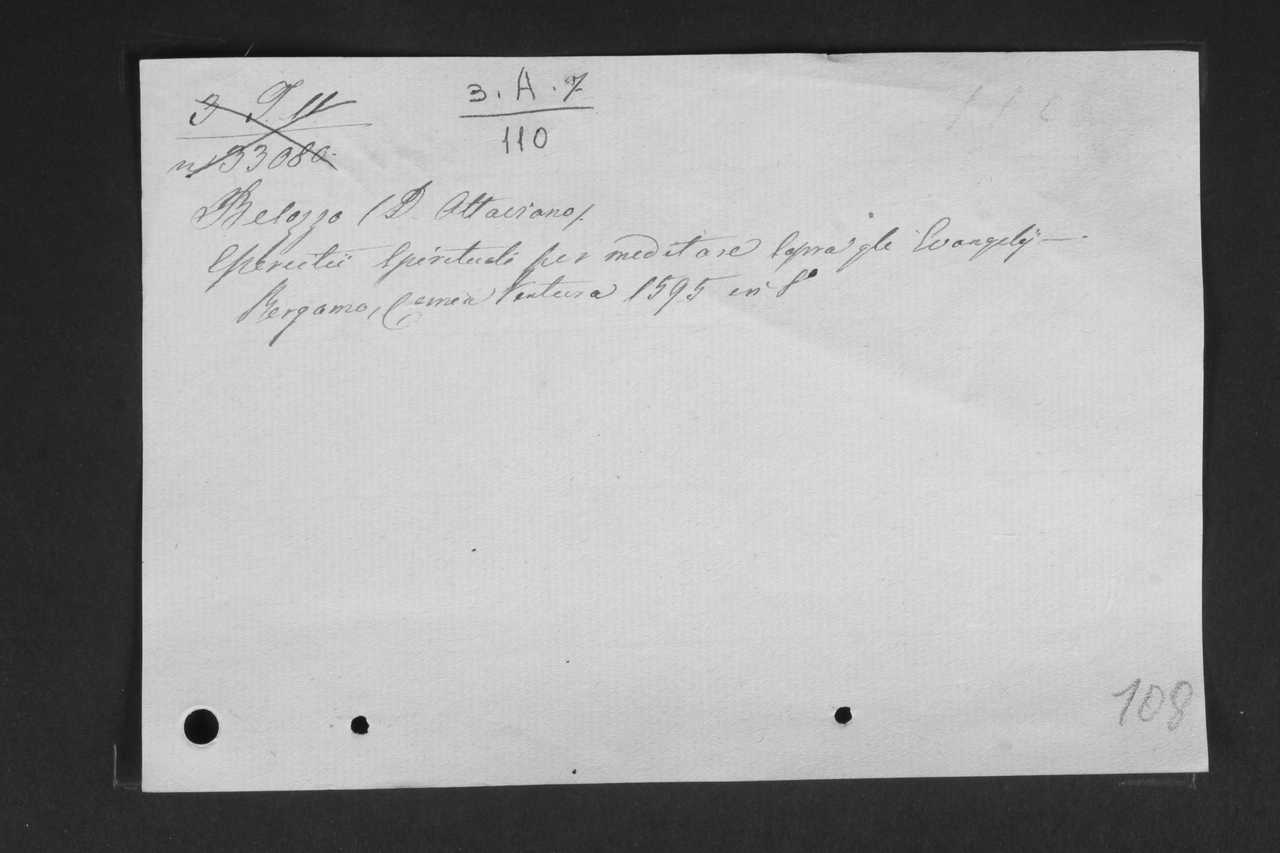 3 T. 11
n° 33080.
3. A. 7
110
Belozzo (D. Attaviano).
Esercitii Spirituali per meditare sopra gli Evangelij —
Bergamo, Comin Ventura 1595 in 8°
108